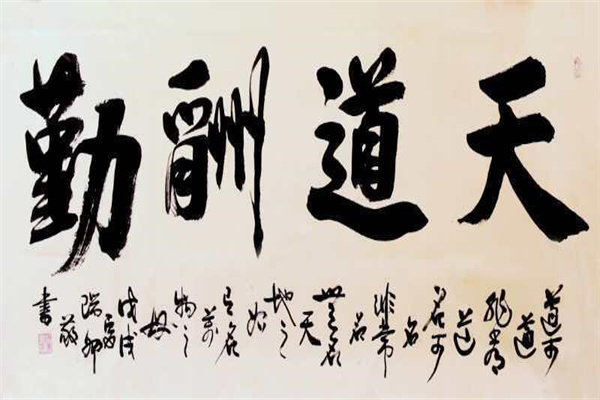 天道酬勤
道可
道
非常
道
名可
名
非常
名
無名
天
地之
始
有名
萬
物之
母
戊戌
敬
書